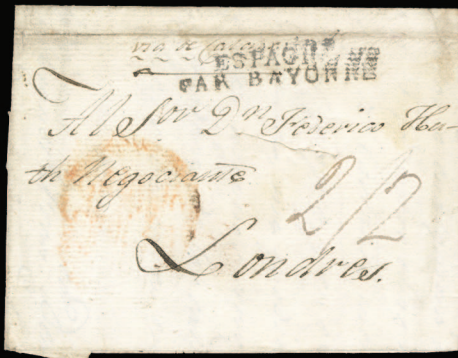 via de
ESPAGNE
PAR BAYONNE
Al Sor Dn Federico Hu-
th Negociante
2/2
Londres.